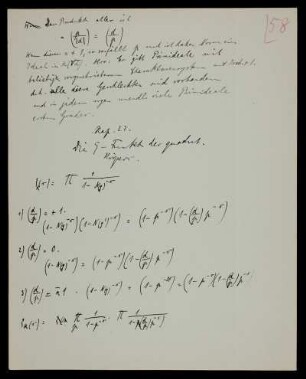 [58
Das Produkt aller ist
= (d/p)
Wenn dieser = + 1, so zerfällt p und ist daher Norm eines
Ideals in K(√d). Also: Es gibt Primideale mit
beliebig vorgeschriebenem Charakterensystem mit Produkt 1.
d.h. alle diese Geschlechter sind vorhanden
und in jedem sogar unendlich viele Primideale
ersten Grades.
Kap. 23.
Die ζ-Funktion der quadrat.
Körper.
ζ_K(s) = Π 1/(1 - N(p)^-s)
1) (d/p) = + 1. (1 - N(p)^-s)(1 - N(p')^-s) = (1 - p^-s)(1 - (d/p) p^-s)
2) (d/p) = 0. (1 - N(p)^-s) = (1 - p^-s)(1 - (d/p) p^-s)
3) (d/p) = - 1. (1 - N(p)^-s) = (1 - p^-2s) = (1 - p^-s)(1 - (d/p) p^-s)
ζ_K(s) = Π_p 1/(1 - p^-s) · Π 1/(1 - (d/p) p^-s)